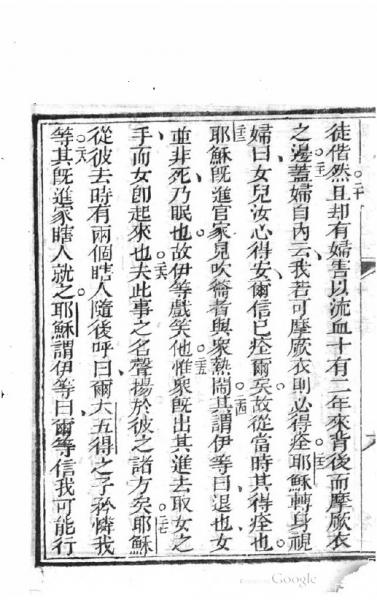 徒偕然○二十且却有婦害以流血十有二年來背後而摩厥衣
之邊○二一蓋婦自內云我若可摩厥衣則必得痊○二二耶穌轉身視
婦曰女兒汝心得安爾信已痊爾矣故從當時其得痊也○
二三耶穌既進官家見吹籥者與眾熱鬧○二四其謂伊等曰退也女
並非死乃眠也故伊等戲笑他○二五惟眾既出其進去取女之
手而女卽起來也○二六夫此事之名聲揚於彼之諸方矣○二七耶穌
從彼去時有兩個瞎人隨後呼曰爾大五得之子矜憐我
等○二八其既進家瞎人就之耶穌謂伊等曰爾等信我可能行
Google